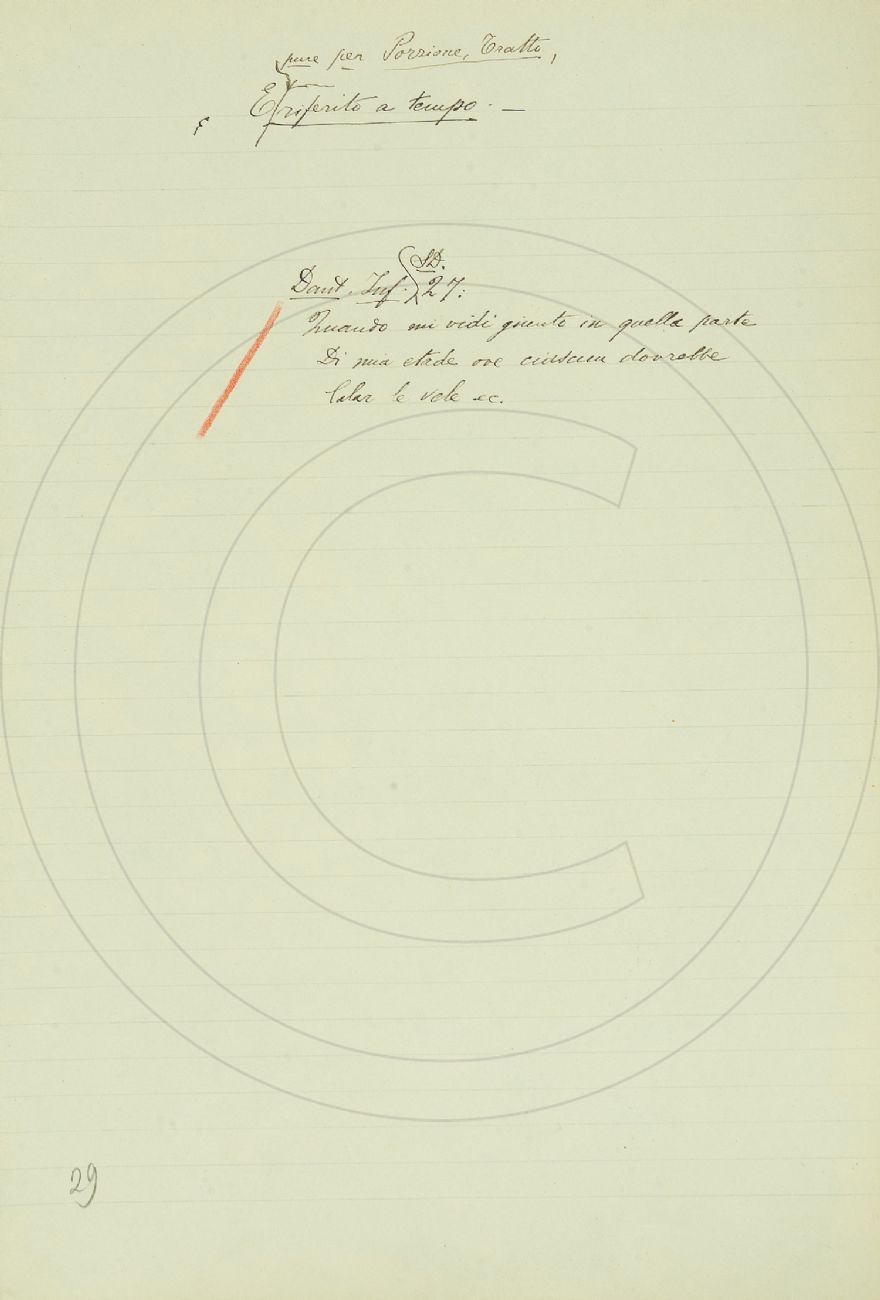 pure per Porzione, Tratto,
E riferito a tempo. —
SD.
Dant. Inf. 27:
Quando mi vidi giunto in quella parte
Di mia etade ove ciascun dovrebbe
Calar le vele ec.
29